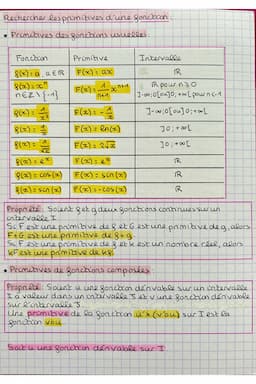 Rechercher les primitives d'une fonction
• Primitives des fonctions usuelles
Fonction Primitive Intervalle
f(x) = a, a ∈ ℝ F(x) = ax ℝ
f(x) = xⁿ F(x) = 1/(n+1) xⁿ⁺¹ ℝ pour n ≥ 0
n ∈ ℤ \ {-1} ]-∞;0[ou]0;+∞[ pour n<-1
f(x) = 1/x² F(x) = -1/x ]-∞;0[ou]0;+∞[
f(x) = 1/x F(x) = ln(x) ]0;+∞[
f(x) = 1/√x F(x) = 2√x ]0;+∞[
f(x) = eˣ F(x) = eˣ ℝ
f(x) = cos(x) F(x) = sin(x) ℝ
f(x) = sin(x) F(x) = -cos(x) ℝ
Propriété: Soient f et g deux fonctions continues sur un
intervalle I
Si F est une primitive de f et G est une primitive de g, alors
F+G est une primitive de f+g.
Si F est une primitive de f et k est un nombre réel, alors
kF est une primitive de kf.
• Primitives de fonctions composées
Propriété: Soient u une fonction dérivable sur un intervalle
I à valeur dans un intervalle J et v une fonction dérivable
sur l'intervalle J.
Une primitive de la fonction u'×(v'ou) sur I est la
fonction vou.
Soit u une fonction dérivable sur I